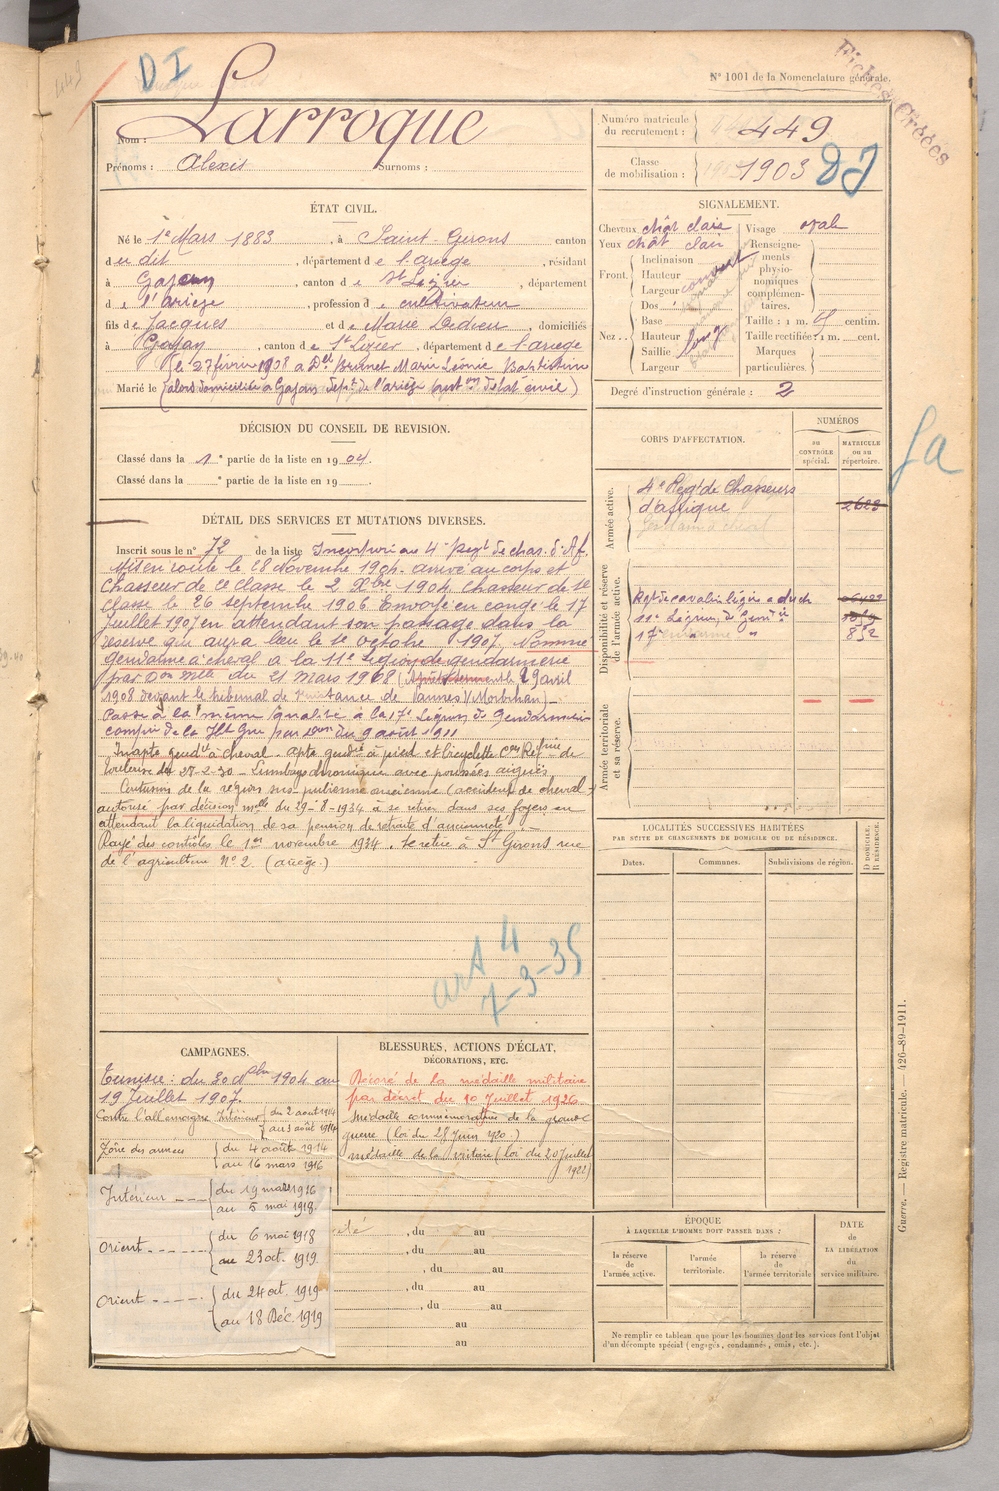 449
DI
N° 1001 de la Nomenclature générale.
Fiches Créées
Nom : Larroque
Prénoms : Alexis Surnoms :
Numéro matricule du recrutement : 449
Classe de mobilisation : 1903
ÉTAT CIVIL.
Né le 1er Mars 1883, à Saint-Girons canton
du dit, département de l'ariège, résidant
à Gajan, canton de St Lizier, département
de l'ariège, profession de cultivateur
fils de Jacques et de Marie Dedieu, domiciliés
à Gajan, canton de St Lizier, département de l'ariège
(le 27 février 1908 a Delle Brunet Marie Léonie Baptistine
Marié le (alors domiciliée à Gajan dépt de l'ariège
SIGNALEMENT.
Cheveux chât clair
Yeux chât clair
Front. Inclinaison
Hauteur
Largeur couvert
Nez. Dos
Base
Hauteur long
Saillie
Largeur
Visage ovale
Renseignements physionomiques complémentaires.
Taille : 1 m. centim.
Taille rectifiée : 1 m. cent.
Marques particulières.
Degré d'instruction générale : 2
DÉCISION DU CONSEIL DE REVISION.
Classé dans la 1e partie de la liste en 1904.
Classé dans la e partie de la liste en 19
CORPS D'AFFECTATION.
NUMÉROS
au CONTRÔLE spécial.
MATRICULE ou au répertoire.
Armée active.
4e Régt de Chasseurs
d'afrique 2623
Disponibilité et réserve de l'armée active.
11e Légion de Gend ie
17e " 852
Armée territoriale et sa réserve.
fa
DÉTAIL DES SERVICES ET MUTATIONS DIVERSES.
Inscrit sous le n° 72 de la liste Incorporé au 4e regt de chas. d'Af.
Mis en route le 28 Novembre 1904. arrivé au corps et
Chasseur de 2e classe le 2 Xbre 1904 Chasseur de 1e
classe le 26 septembre 1906 Envoyé en congé le 17
Juillet 1907 en attendant son passage dans la
réserve qui aura lieu le 1e octobre 1907. Nommé
gendarme à cheval a la 11e Légion de gendarmerie
par Don mlle du 21 mars 1908 29 avril
1908 devant le tribunal de 1ere instance de Vannes (Morbihan)
Passé à la même qualité à la 17e Légion de Gendarmerie
compie de la Hte Gne par Don du 9 août 1911
Inapte gendie à cheval. apte gendie à pied et bicyclette Con Réfme de
Toulouse du 27-2-30 – Lumbago chronique avec poussées aiguës
Contusion de la région sus-pubienne ancienne (accident de cheval)
autorisé par décision mlle du 29-8-1934 à se retirer dans ses foyers en
attendant la liquidation de sa pension de retraite d'ancienneté.
Rayé des contrôles le 1er novembre 1934. se retire à St Girons rue
de l'agriculture N° 2. (ariège).
art 4
7-3-35
LOCALITÉS SUCCESSIVES HABITÉES
PAR SUITE DE CHANGEMENTS DE DOMICILE OU DE RÉSIDENCE.
Dates.
Communes.
Subdivisions de région.
D DOMICILE. R RÉSIDENCE.
CAMPAGNES.
Tunisie : du 30 1904 au
19 Juillet 1907.
Contre l'allemagne Intérieur du 2 août 1914
au 3 août 1914
Zône des armées du 4 août 1914
au 16 mars 1916
Intérieur du 19 mars 1916
au 5 mai 1918.
Orient du 6 mai 1918
au 23 oct. 1919
Orient du 24 oct. 1919
au 18 Déc. 1919
BLESSURES, ACTIONS D'ÉCLAT,
DÉCORATIONS, ETC.
Décoré de la médaille militaire
par décret du 10 Juillet 1926
Médaille commémorative de la grande
guerre (loi du 28 Juin 1920.)
médaille de la victoire (loi du 20 Juillet
1922)
, du au
, du au
, du au
, du au
au
au
ÉPOQUE
À LAQUELLE L'HOMME DOIT PASSER DANS :
la réserve de l'armée active.
l'armée territoriale.
la réserve de l'armée territoriale
DATE
DE LA LIBÉRATION
du
service militaire.
Ne remplir ce tableau que pour les hommes dont les services font l'objet
d'un décompte spécial (engagés, condamnés, omis, etc.).
Guerre. — Registre matricule. — 426-89-1911.